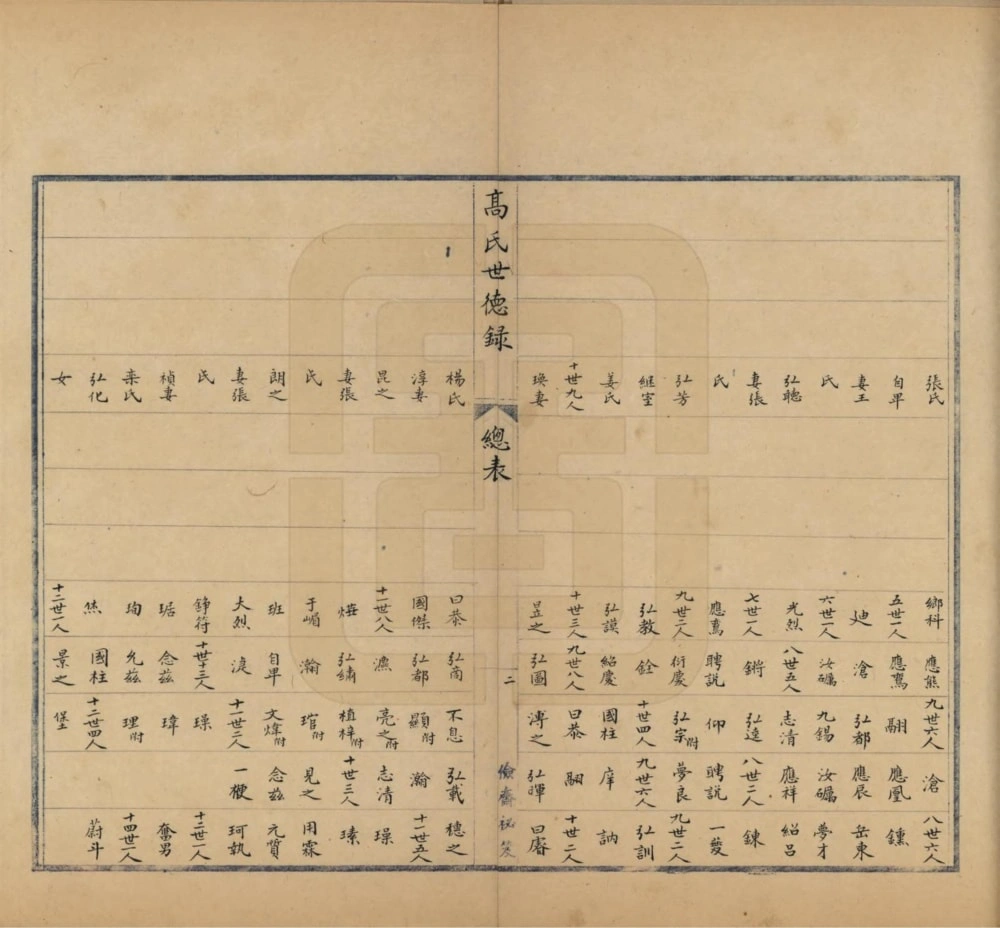 張氏
自卑
妻王
氏
弘聰
妻張
氏
弘芳
繼室
姜氏
十世九人
瑛妻
鄉科
五世一人
廸
六世一人
光烈
七世一人
應鳶
九世二人
弘教
弘謨
十世三人
昱之
應熊
應鳶
滄
汝礪
八世五人
鏘
聘說
衍慶
銓
紹慶
九世八人
弘圖
九世六人
翩
弘都
九錫
志清
弘逵
仰
弘宗附
十世四人
國柱
曰恭
溥之
滄
應凰
應辰
汝礪
應祥
八世二人
聘說
夢良
九世六人
庠
翩
弘暉
八世六人
鑂
岳東
夢才
紹呂
鍊
一夔
九世二人
弘訓
訥
十世二人
曰睿
高氏世德錄
總表
二
儉齋祕笈
楊氏
淳妻
昆之
妻張
氏
朗之
妻張
氏
禎妻
栾氏
弘化
女
曰恭
國傑
十一世八人
于嵋
班
大烈
錚符
琚
珣
烋
十二世一人
弘南
弘都
濂
弘繡
瀚
自卑
淚
十世十三人
念茲
允茲
國柱
景之
不息
顯附
亮之附
植梓附
琯附
文煒附
十一世二人
璪
瑋
理附
十二世四人
堡
弘載
瀚
志清
十世三人
晃之
念茲
一梗
穗之
十一世五人
璪
瑧
用霖
元質
珂執
十二世一人
奮男
十四世一人
蔚斗